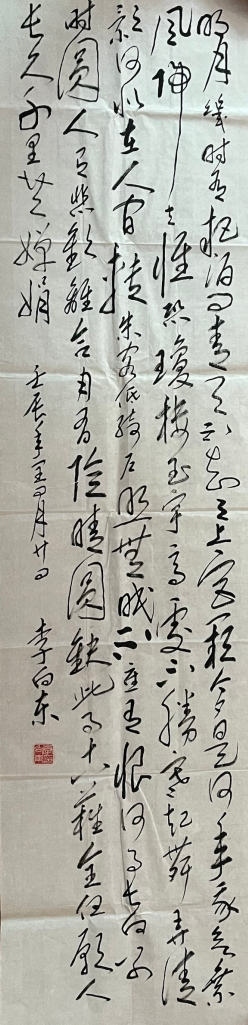 明月幾時有把酒问青天不知天上宫阙今夕是何年我欲乘
风歸去惟恐瓊楼玉宇高處不勝寒起舞弄清
影何似在人间轉朱阁低綺户照無眠不應有恨何事长向别
时圆人有悲歡離合月有阴晴圆缺此事古難全但愿人
长久千里共婵娟
壬辰年四月廿
李向东